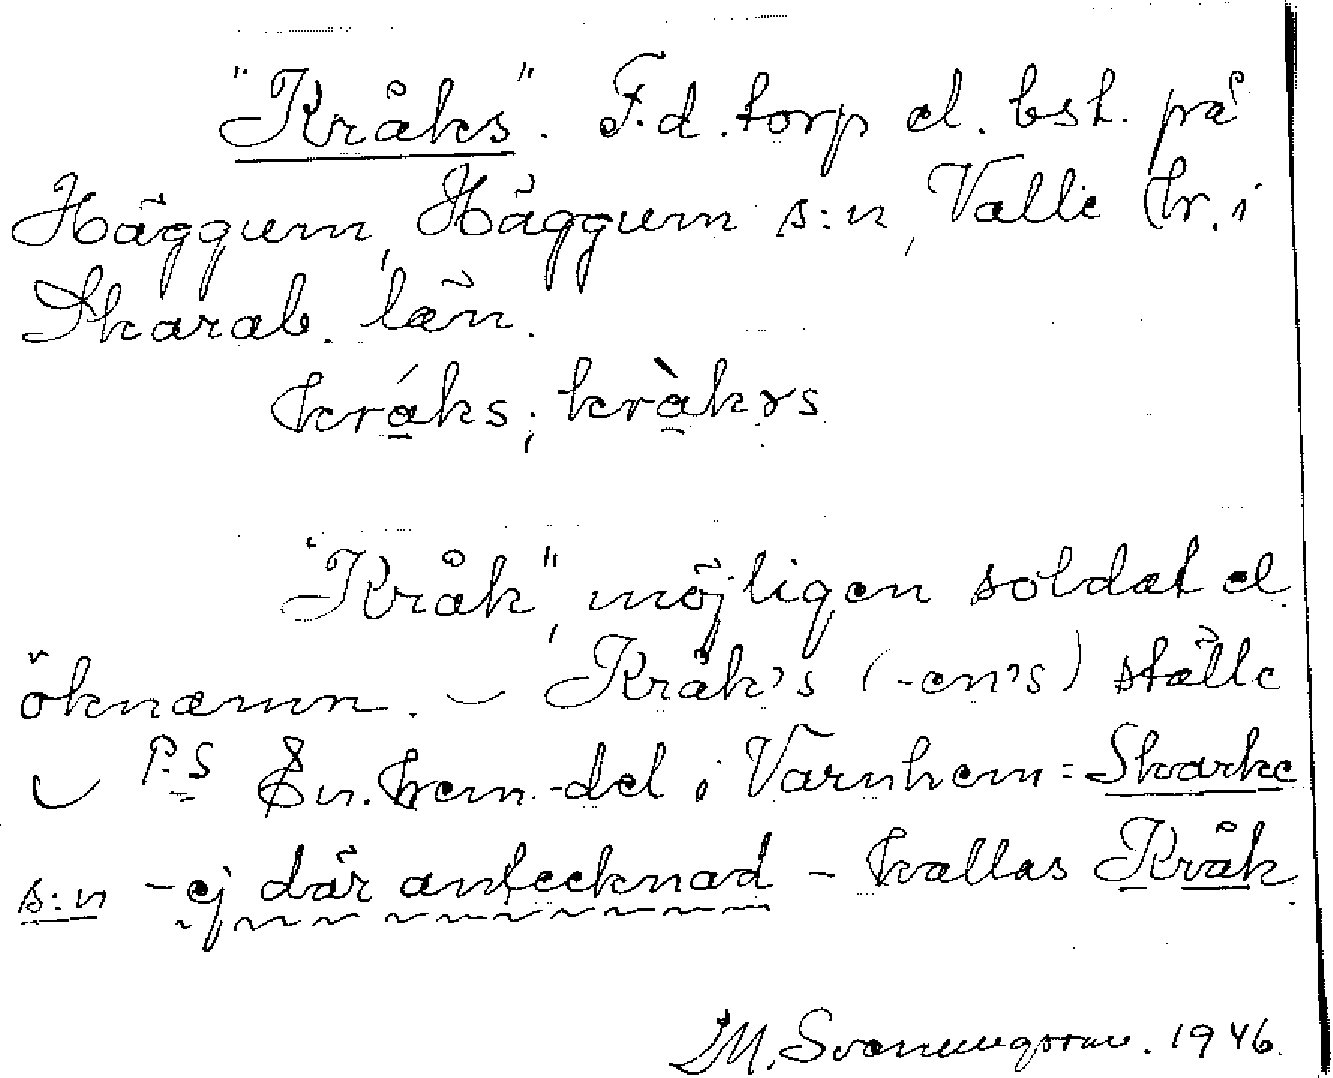 "Kråks". F.d. torp el. bst. på
Häggum, Häggum s:n, Valle hr. i
Skarab. län.
kráks; kràkɤs
"Kråk", möjligen soldat el.
öknamn. – Kråk's (-en's) ställe
– P.S En. hem.-del i Varnhem = Skarke
s:n – ej där antecknad – kallas Kråk.
M. Svanungsson. 1946.